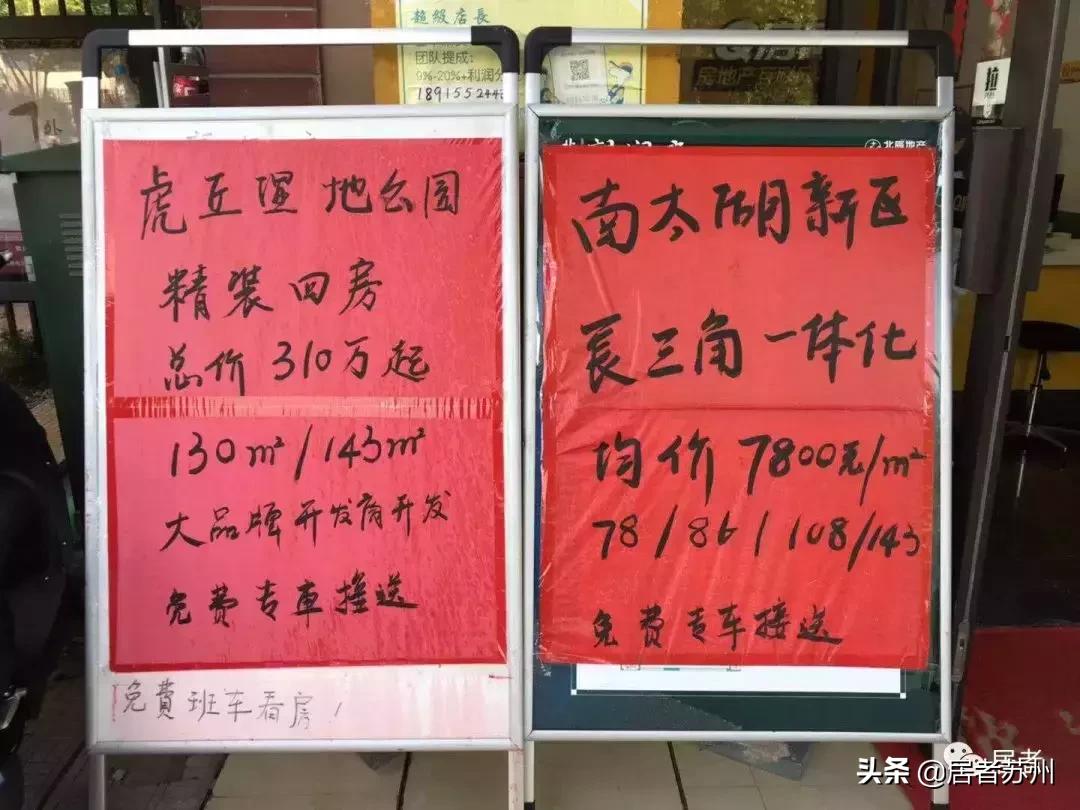 超级店長
团队提成:
9%-20%+利润分
房地产
拉
虎丘湿地公园
精装四房
总价310万起
130m²/143m²
大品牌开发商开发
免费专車接送
免費班车看房!
北辰地产
南太湖新区
長三角一体化
均价7800元/m²
78/86/108/143
免费专车接送
居者
头条 @居者苏州